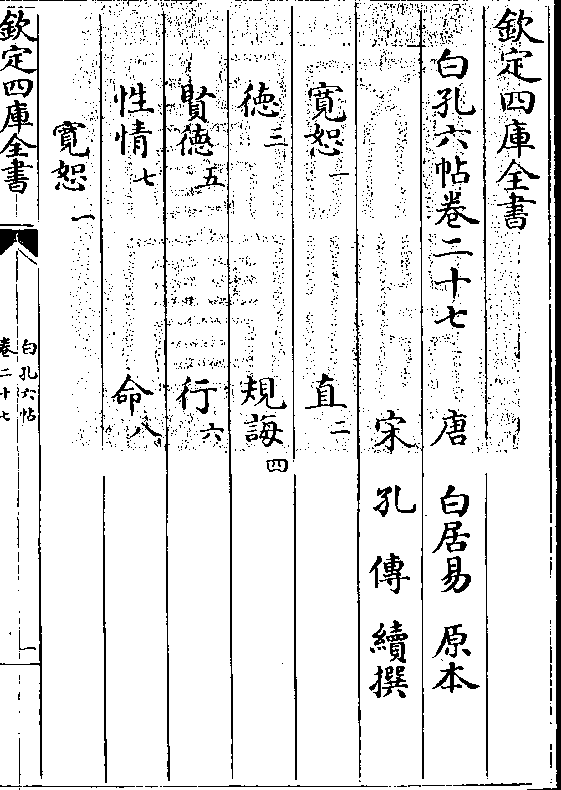 欽定四庫全書
白孔六帖卷二十七 唐 白居易 原本
宋 孔傳 續撰
寛恕一 直二
徳三 規誨四
賢徳五 行六
性情七 命八
寛恕一
欽定四庫全書
白孔六帖
卷二十七
一